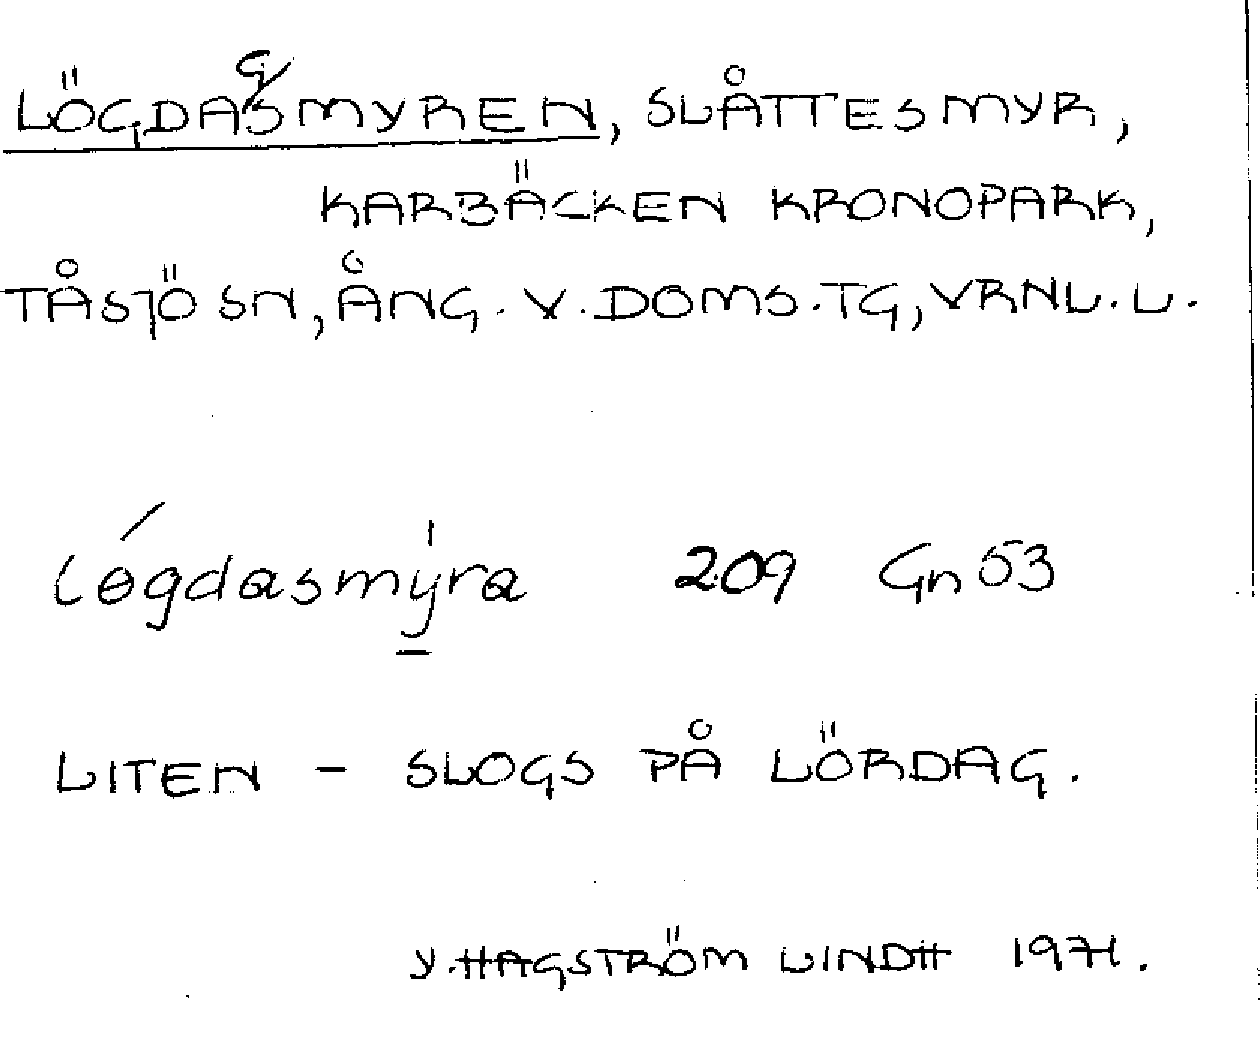 LÖGDAGSMYREN, SLÅTTESMYR,
KARBÄCKEN KRONOPARK,
TÅSJÖ SN, ÅNG. V. DOMS. TG, VRNL. L.
lógdasmýra 209 Gn 53
LITEN – SLOGS PÅ LÖRDAG.
Y. HAGSTRÖM LINDH 1971.